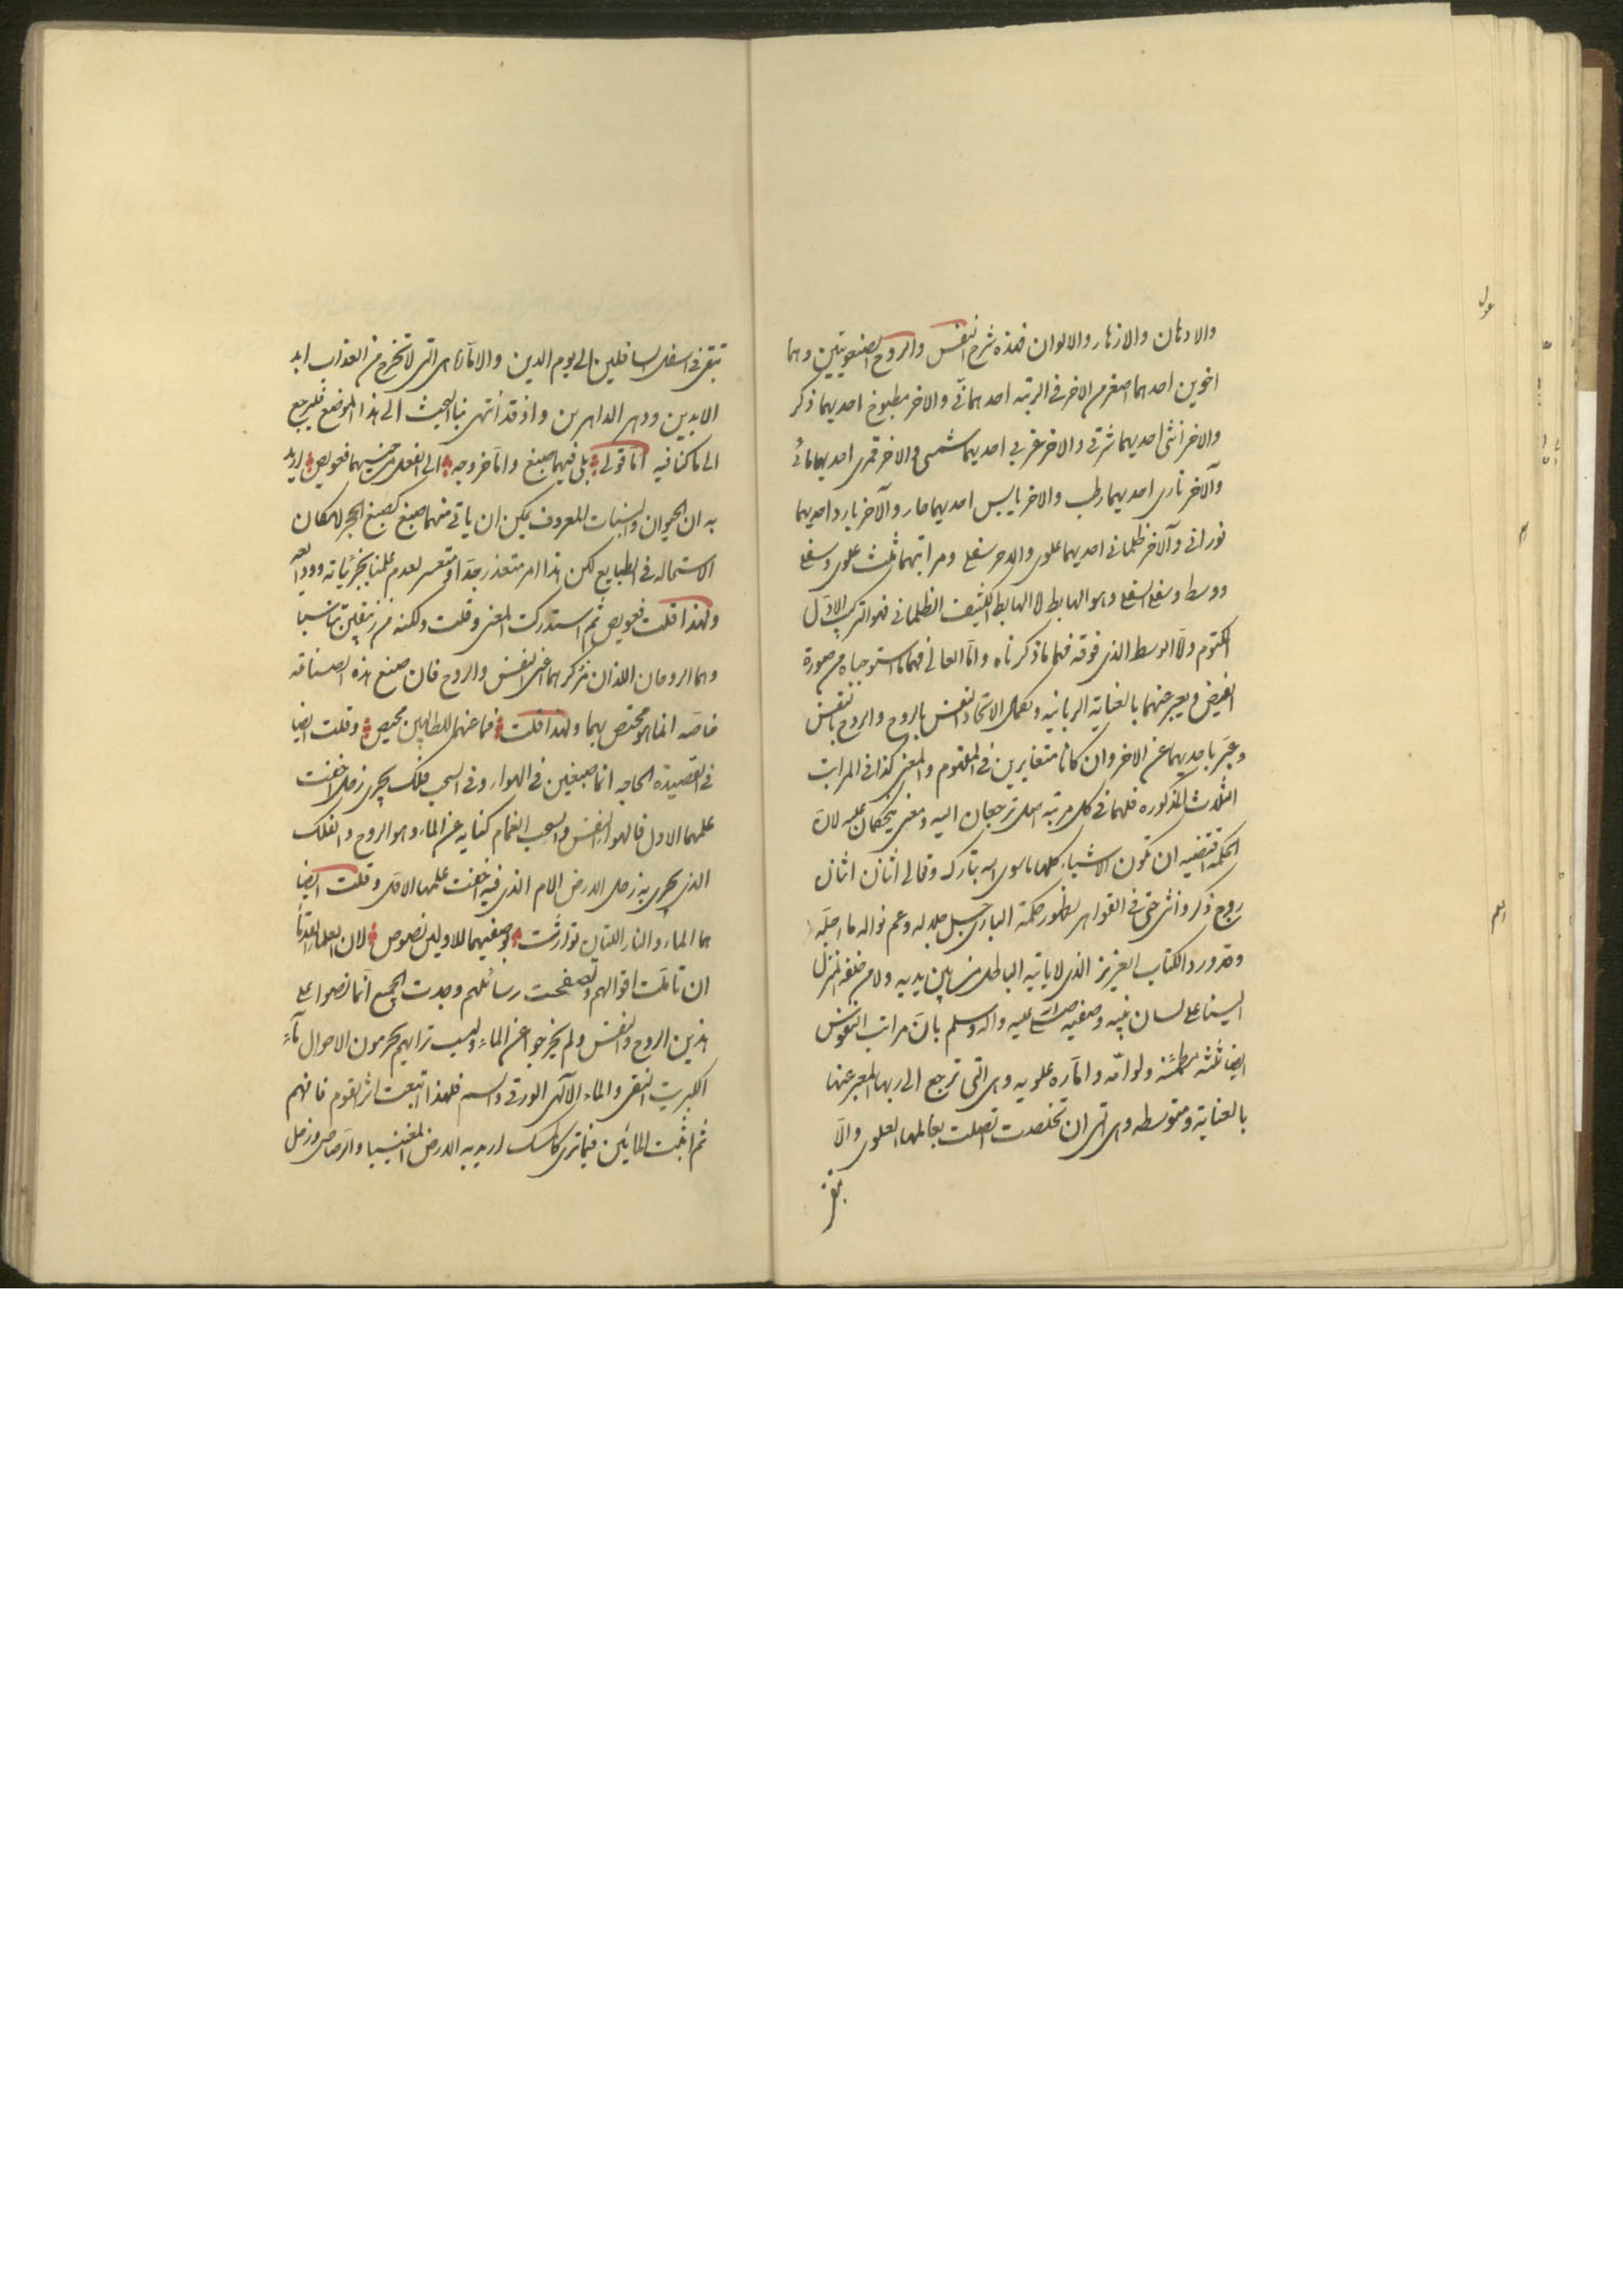 والادهان والازهار والالوان فهذه شرح النفس والروح الصنعويتين وهما
اخوين احدهما اصغر من الاخر فى الرتبه احدهما نى والاخر مطبوخ احديهما ذكر
والاخر انثى احديهما شرقى والاخر غربى احديهما شمسى والاخر قمرى احديهما مائى
والاخر نارى احديهما رطب والاخر يابس احديهما حار والاخر بارد احديهما
نورانى والاخر ظلمانى احديهما علوى والاخر سفلى ومراتبهما ثلث علوى وسفلى
ووسط وسفلى السفلى وهو الهابط لا الهابط الكثيف الظلمانى فهو التركيب الاول
المكتوم ولا الوسط الذى فوقه فهما ما ذكرناه واما العالى فهما ما استوجباه من صورة
الفيض ويعبر عنهما بالعناية الربانيه وبكمال الاتحاد النفس بالروح والروح بالنفس
وعبّر باحديهما عن الاخر وان كانا متغايرين فى المفهوم والمعنى كذا فى المراتب
الثلاث المذكوره فلهما فى كل مرتبه اصل ترجعان اليه ومعنى يحكمان عليه لان
الحكمة مقتضيه ان تكون الاشياء كلها ما سوى الله تبارك وتعالى اثنان اثنان
زوج ذكر وانثى حتى فى القواهر لظهور حكمة البارى جل جلاله وعم نواله ما اجله
وقد ورد الكتاب العزيز الذى لا ياتيه الباطل من بين يديه ولا من خلفه المنزل
الينا على لسان نبيه وصفيه صلى الله عليه واله وسلم بان مراتب النفوس
ايضا ثلثه مطمئنه ولوامه واماره علويه وهى التى ترجع الى ربها المعبر عنها
بالعناية ومتوسطه وهى التى ان تخلصت اتصلت بعالمها العلوى والا
تبقى
تبقى فى اسفل السافلين الى يوم الدين والاماره هى التى لا تخرج من العذاب ابد
الابدين ودهر الداهرين واذ قد انتهى بنا البحث الى هذا الموضع فليرجع
الى ما كنا فيه اما قولى بلى فيهما صبغ واما خروجه الى الفعل من جنسيهما فعويص اريد
به ان الحيوان والنبات المعروف يمكن ان ياتى منهما صبغ كصبغ الحجر لامكان
الاستحاله فى الطبايع لكن هذا امر متعذر جدا او متعسر لعدم علمنا بجزئياته
ولهذا قلت فعويص ثم استدركت المعنى وقلت ولكنه من زيبقين تناسبا
وهما الروحان اللذان مر ذكرهما اعنى النفس والروح فان صبغ هذه الصناعه
خاصه انما هو مختص بهما ولهذا قلت فما عنهما للطالبين محيص وقلت ايضا
فى القصيدة الحاجه انما صبغين فى الهواء وفى السحب فلك يجرى زحل اخفت
علمها الاول فالهواء النفس والسحب الغمام كنايه عن الماء وهو الروح والفلك
الذى يجرى به زحل الارض الام الذى فيه اخفت علمها الاول وقلت ايضا
هما الماء والنار اللتان تواردت بوصفيهما للاولين نصوص لان العلماء القدماء
ان تاملت اقوالهم وتصفحت رسائلهم وجدت الجميع انما نصوا على
هذين الروح والنفس ولم يخرجوا عن الماء والهب تراهم يحرمون الاحوال
الكبريت النقى والماء الالهى الورقى والسم فلهذا اتبعت اثر القوم فافهم
ثم اثبت المائين فيما ترى كاسك اريد به الارض المغنيسيا والرصاص وزحل